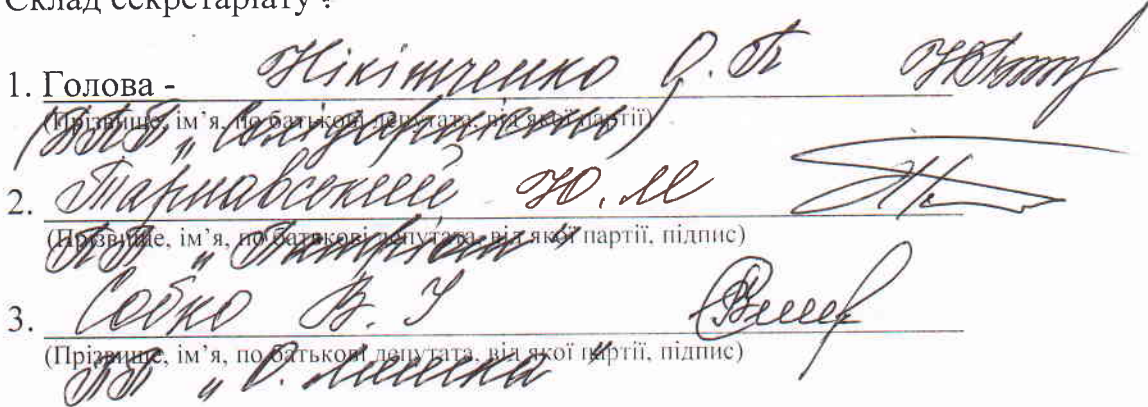 Склад секретаріату :
1. Голова - Нікітченко О. П
(Прізвище, ім’я, по батькові депутата, від якої партії)
(ППБ „ Солідарність)
2. Тарнавський Ю. М
(Прізвище, ім’я, по батькові депутата, від якої партії, підпис)
ПП „
3. Собко В. І
(Прізвище, ім’я, по батькові депутата, від якої партії, підпис)
ПП „ О. Ляшка “